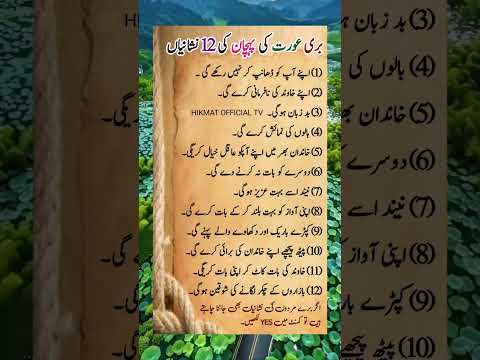 بری عورت کی پہچان کی 12 نشانیاں
(1) اپنے آپ کو ڈھانپ کر نہیں رکھے گی ۔
(2) اپنے خاوند کی نافرمانی کرے گی ۔
(3) بد زبان ہوگی۔ HIKMAT OFFICIAL TV
(4) بالوں کی نمائش کرے گی۔
(5) خاندان بھر میں اپنے آپکو عاقل خیال کریگی۔
(6) دوسرے کو بات نہ کرنے دے گی۔
(7) نیند اسے بہت عزیز ہوگی۔
(8) اپنی آواز کو بہت بلند کر کے بات کرے گی۔
(9) کپڑے باریک اور دکھاوے والے پہنے گی۔
(10) پیٹھ پیچھے اپنے خاندان کی برائی کرے گی۔
(11) خاوند کی بات کاٹ کر اپنی بات کریگی۔
(12) بازاروں کے چکر لگانے کی شوقین ہوگی۔
اگر برے مردوں کی نشانیاں بھی جاننا چاہتے
ہیں تو کمنٹ میں YES لکھیں۔
(3) بد زبان ہو
(4) بالوں کی
(5) خاندان بھر
(6) دوسرے کو
(7) نیند اسے
(8) اپنی آواز
(9) کپڑے
(10) پیٹھ پیچھے